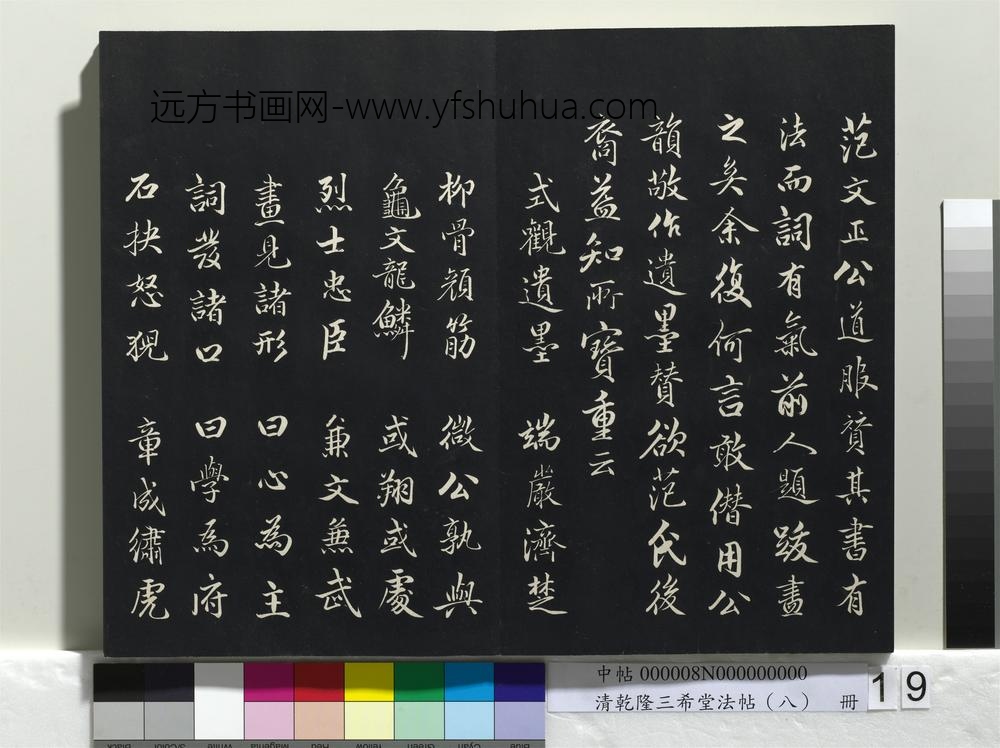 远方书画网-www.yfshuhua.com
范文正公道服贊其書有
法而詞有氣前人題跋盡
之矣余復何言敢僭用公
韻敬作遺墨贊欲范氏後
裔益知所寶重云
式觀遺墨 端嚴濟楚
柳骨顏筋 微公孰與
龜文龍鱗 或翔或處
烈士忠臣 兼文兼武
畫見諸形 曰心為主
詞發諸口 曰學為府
石抉怒猊 章成繡虎
中帖 000008N000000000
清乾隆三希堂法帖（八） 冊 19
Black 3/Color White Magenta Red Yellow Green Cyan Blue